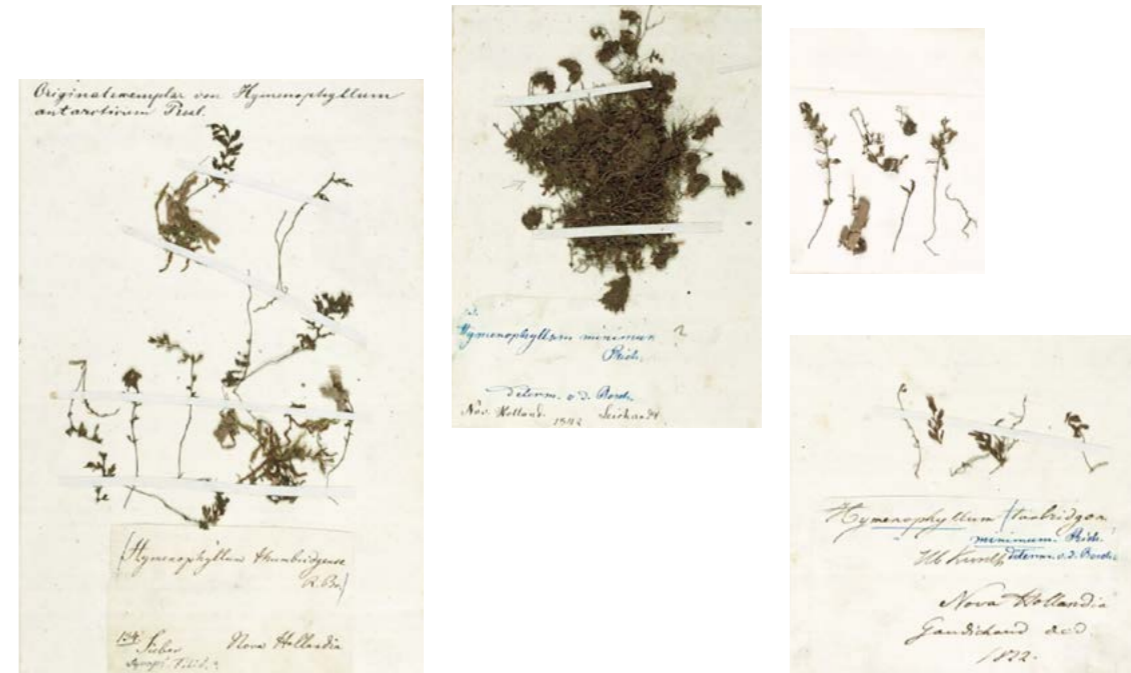 Originalexemplar von Hymenophyllum
antarcticum Presl.
(Hymenophyllum thunbridgense
R. Br.)
134. Sieber Nova Hollandia
Hymenophyllum minimum ?
Rich.
determ. v. d. Bosch.
Nov. Holland. Leichardt.
1842
Hymenophyllum (tunbridgen
minimum. Rich.
Hb Kunth determ. v. d. Bosch.
Nova Hollandia
Gaudichaud ded.
1822.